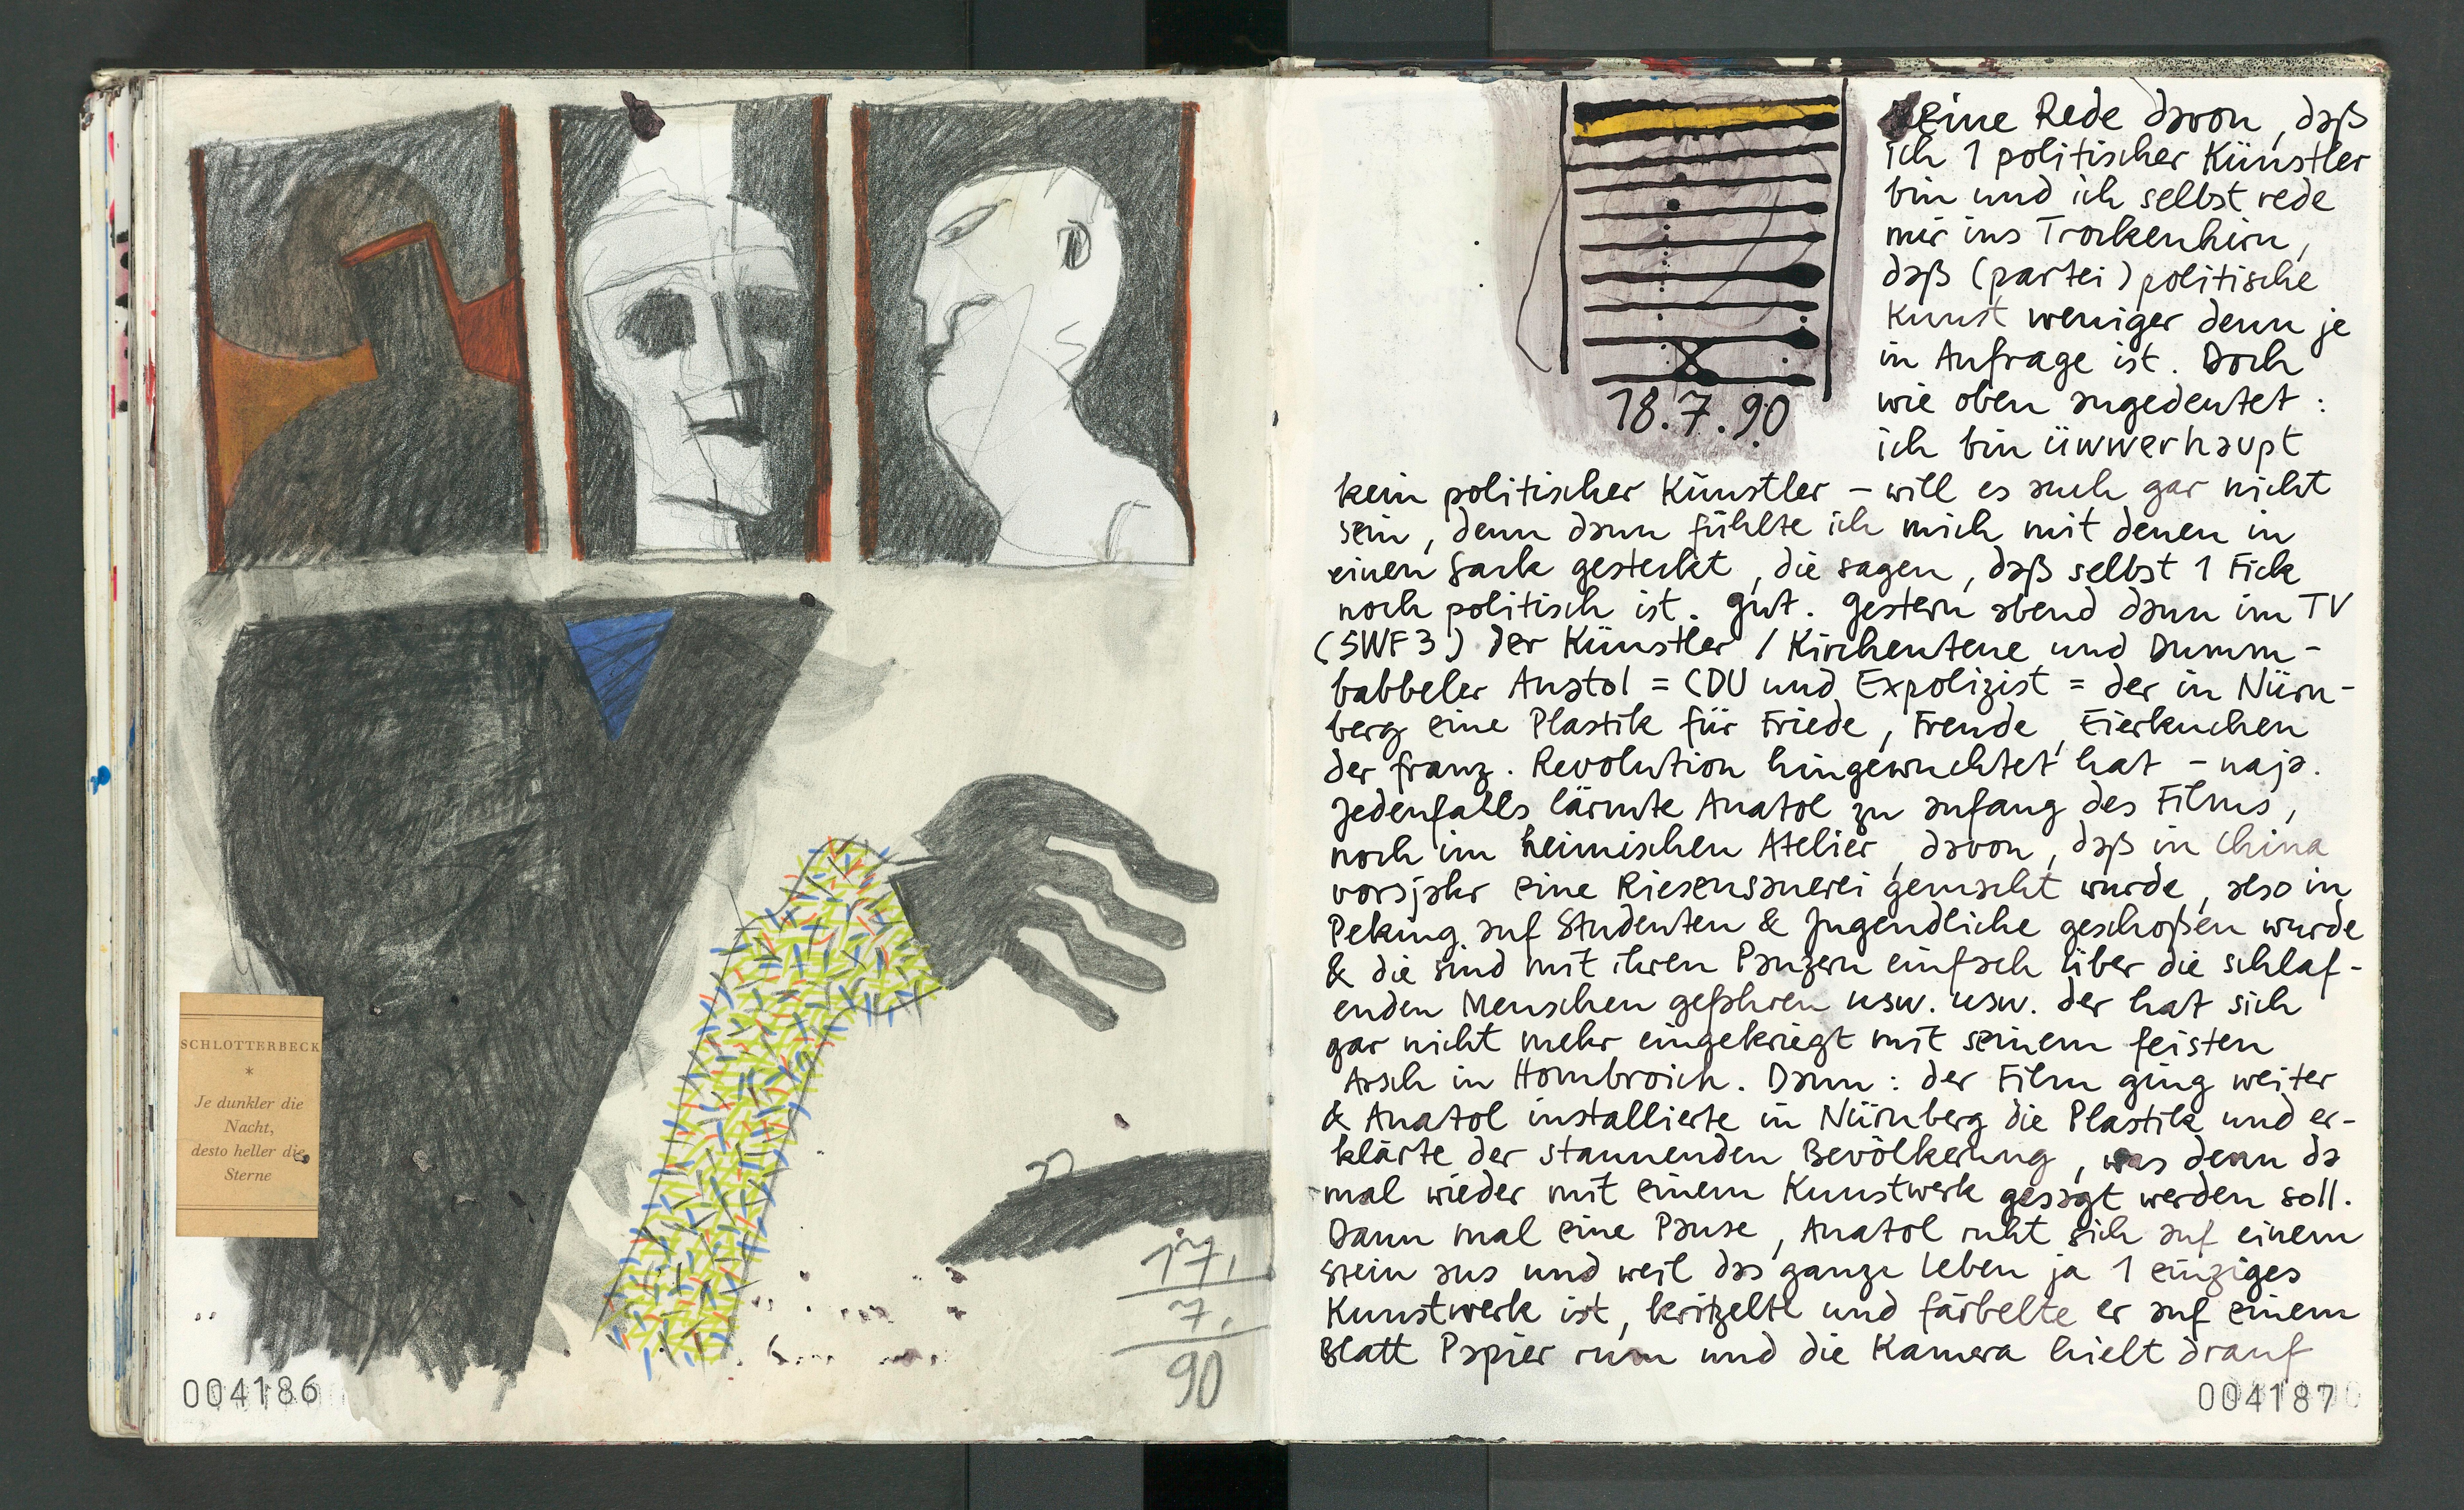 SCHLOTTERBECK
*
Je dunkler die
Nacht,
desto heller die
Sterne
17.
7.
90
004186
18.7.90
Keine Rede davon, daß
ich 1 politischer Künstler
bin und ich selbst rede
mir ins Trockenhirn,
daß (partei) politische
Kunst weniger denn je
in Anfrage ist. Doch
wie oben angedeutet:
ich bin üwwerhaupt
kein politischer Künstler – will es auch gar nicht
sein, denn dann fühlte ich mich mit denen in
einen Sack gesteckt, die sagen, daß selbst 1 Fick
noch politisch ist. Gut. Gestern abend dann im TV
(SWF3) der Künstler / Kirchentene und Dumm-
babbeler Anatol = CDU und Expolizist = der in Nürn-
berg eine Plastik für Friede, Freude, Eierkuchen
der franz. Revolution hingewuchtet hat – naja.
Jedenfalls lärmte Anatol zu anfang des Films,
noch im heimischen Atelier, davon, daß in China
vorsjahr eine Riesensauerei gemacht wurde, also in
Peking auf Studenten & Jugendliche geschoßen wurde
& die sind mit ihren Panzern einfach über die schlaf-
enden Menschen gefahren usw. usw. der hat sich
gar nicht mehr eingekriegt mit seinem feisten
Arsch in Hombroich. Dann: der Film ging weiter
& Anatol installierte in Nürnberg die Plastik und er-
klärte der staunenden Bevölkerung, was denn da
mal wieder mit einem Kunstwerk gesagt werden soll.
Dann mal eine Pause, Anatol ruht sich auf einem
Stein aus und weil das ganze Leben ja 1 einziges
Kunstwerk ist, kritzelte und färbelte er auf einem
Blatt Papier rum und die Kamera hielt drauf
004187